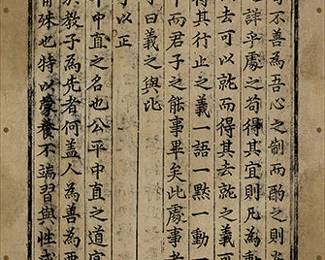 可不善為吾心之制而酌之則
詳乎處之苟得其宜則凡為動
去可以就而得其去就之義可
得其行止之義一語一點一動一
中而君子之能事畢矣此處事者
子曰義之與比
子以正
平中直之名也公平中直之道寓
於教子為先者何盖人為善為惡
有殊也特以蒙養不端習與性成